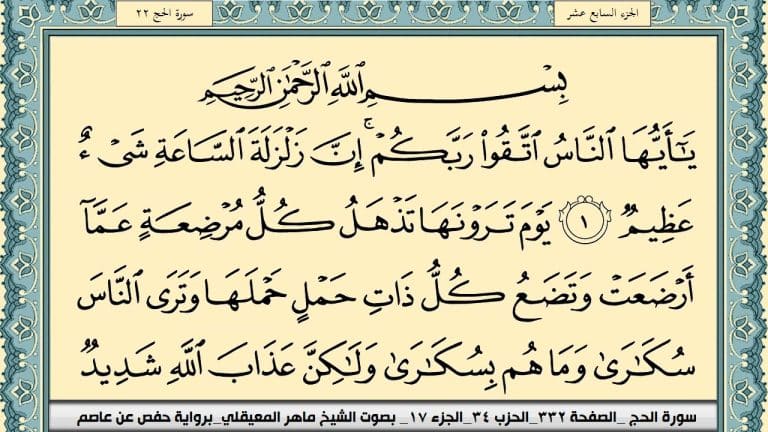 الجزء السابع عشر
سورة الحج ٢٢
بِسْمِ ٱللَّهِ ٱلرَّحْمَٰنِ ٱلرَّحِيمِ
يَٰٓأَيُّهَا ٱلنَّاسُ ٱتَّقُوا۟ رَبَّكُمْ ۚ إِنَّ زَلْزَلَةَ ٱلسَّاعَةِ شَىْءٌ
عَظِيمٌ ١ يَوْمَ تَرَوْنَهَا تَذْهَلُ كُلُّ مُرْضِعَةٍ عَمَّآ
أَرْضَعَتْ وَتَضَعُ كُلُّ ذَاتِ حَمْلٍ حَمْلَهَا وَتَرَى ٱلنَّاسَ
سُكَٰرَىٰ وَمَا هُم بِسُكَٰرَىٰ وَلَٰكِنَّ عَذَابَ ٱللَّهِ شَدِيدٌ
سورة الحج _الصفحة ٣٣٢_الحزب ٣٤_الجزء ١٧_ بصوت الشيخ ماهر المعيقلي_برواية حفص عن عاصم